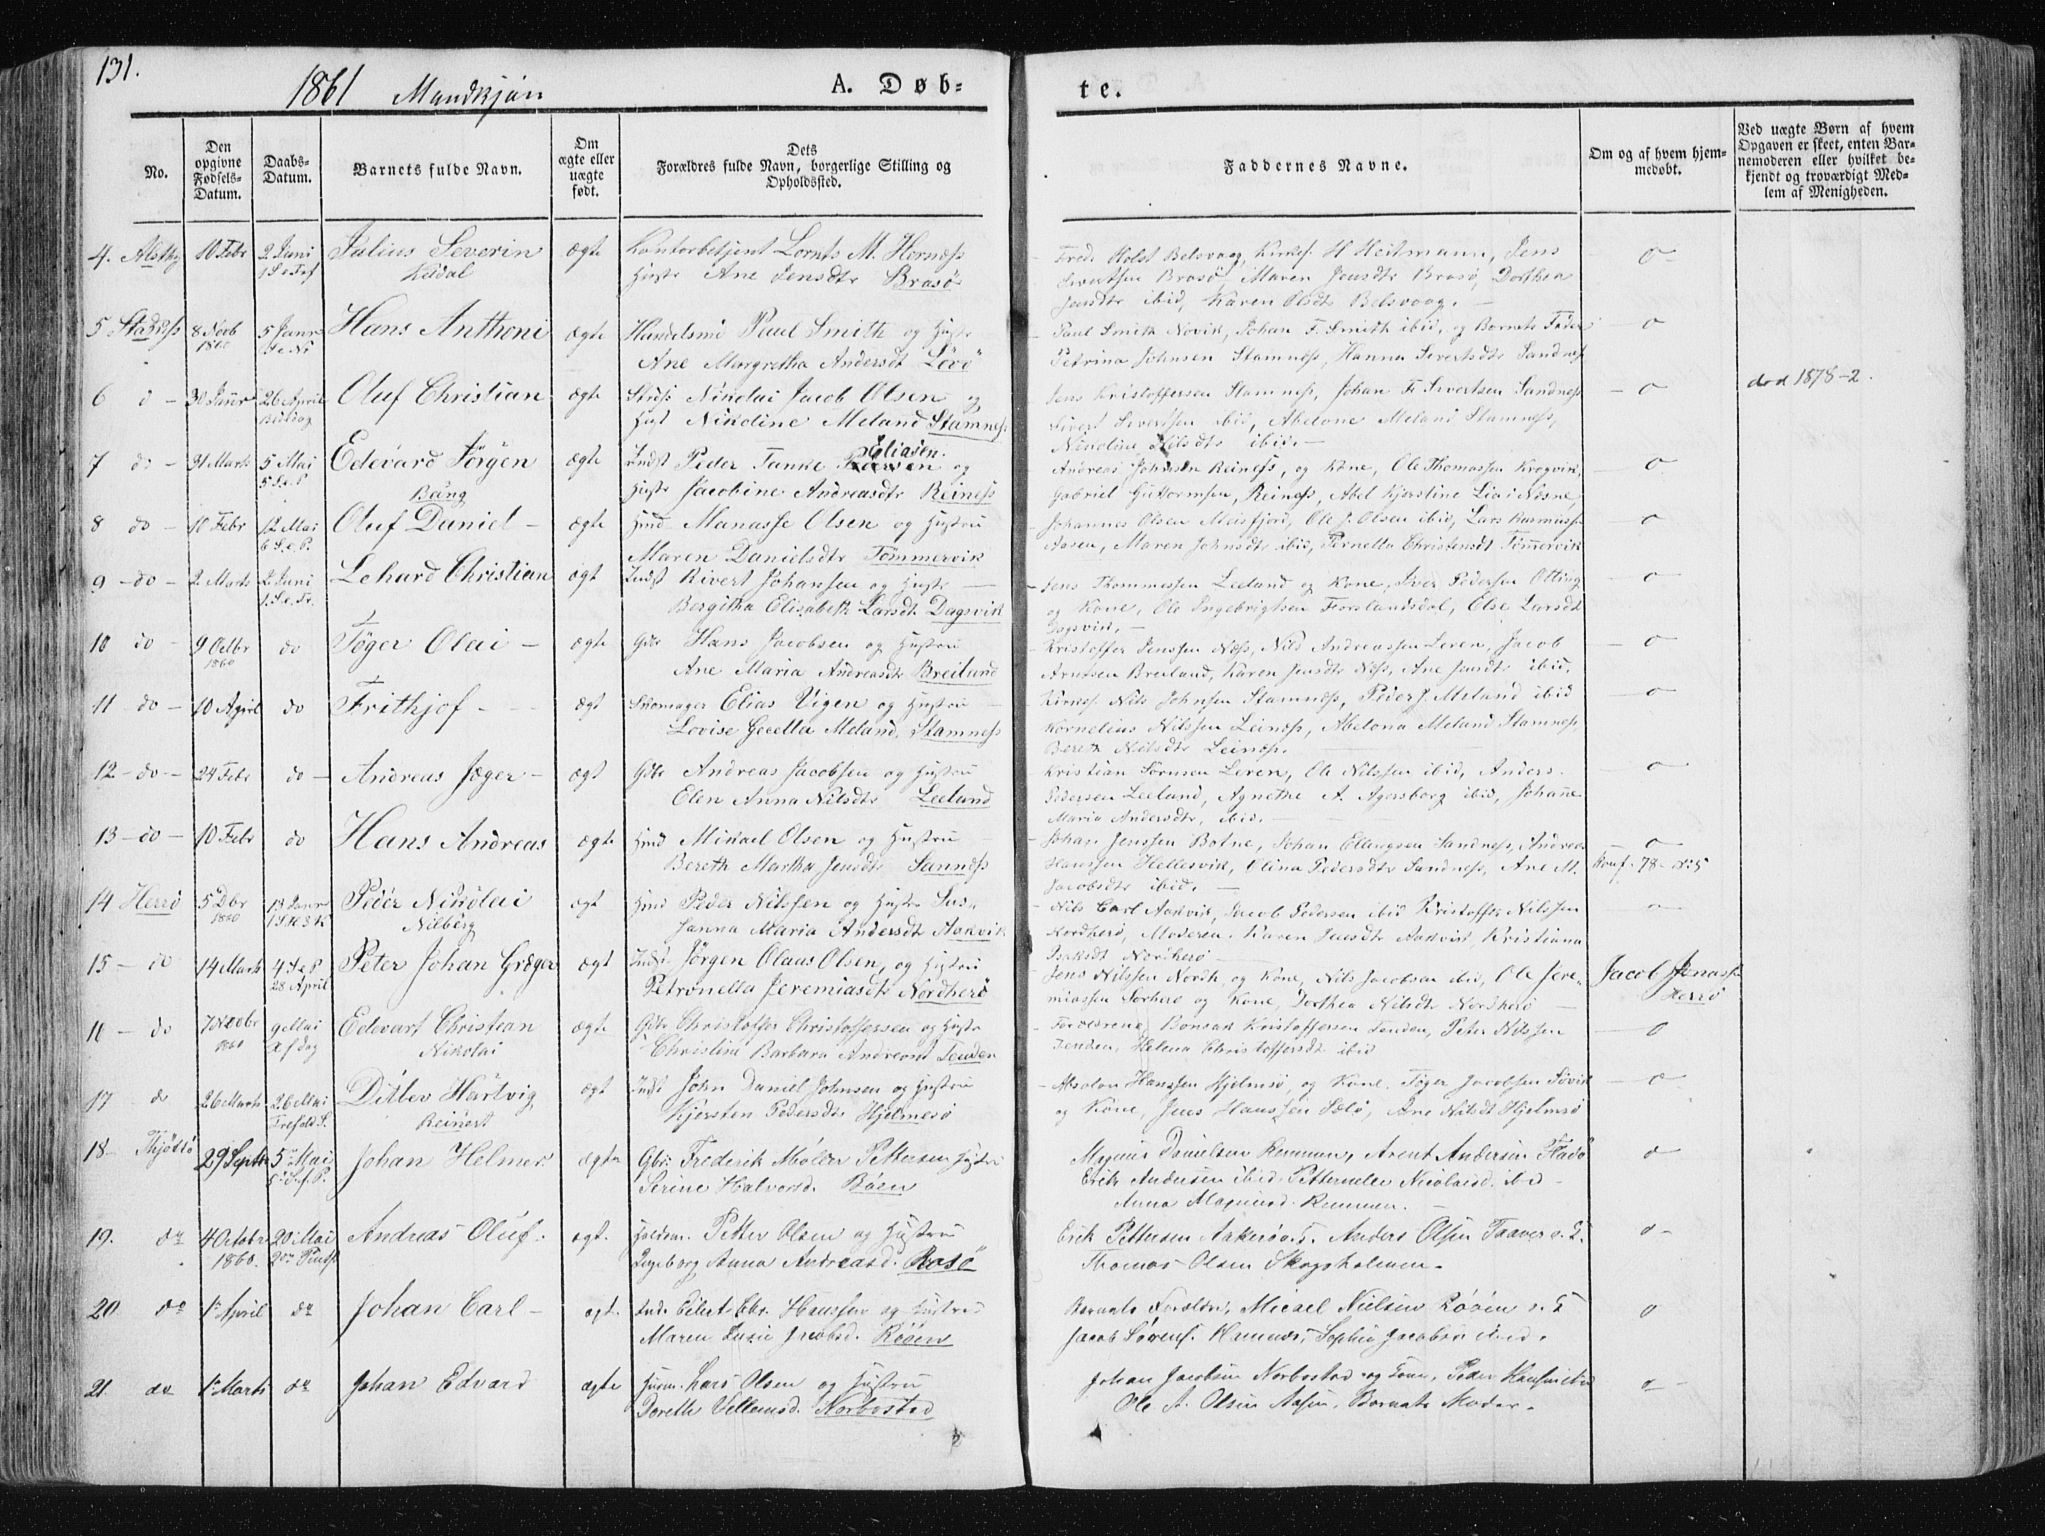 131.
1861 Mandkjøn
A. Døb-
te.
No.
Den opgivne Fødsels-Datum.
Daabs-Datum.
Barnets fulde Navn.
Om ægte eller uægte født.
Dets Forældres fulde Navn, borgerlige Stilling og Opholdssted.
Faddernes Navne.
Om og af hvem hjem-medøbt.
Ved uægte Børn af hvem Opgaven er skeet, enten Bar-nemoderen eller hvilket be-kjendt og troværdigt Med-lem af Menigheden.
4. Alsthg 10 Febr 2 Juni Julius Severin ægte Contorbetjent Lornts M. Hornæss
Hustr Ane Jensdtr Brasø
Fred. Holst Belsvaag, Kirkes. H Heitmann, Jens
Sivertsen Brasø, Maren Jensdtr Brasø, Dorthea
Jensdtr ibid, Karen Olsdt Belsvaag.
o
5 8 Novb 1860 5 Janr Hans Anthoni ægte Handelsmd Paul Smith og Hustr
Ane Margretha Andersdt Løvø
Paul Smith Novik, Johan F. Smith ibid, og Barnets Fader
Petrina Johnsen Stamnæss, Hanna Sivertsdtr Sandnæs
o
6 d 30 Janr 26 April Oluf Christian ægte Nikolai Jacob Olsen og
Nikoline Meland Stamnæss
Jens Kristoffersen Stamnæss, Johan F. Sivertsen Sandnæss
Sivert Sivertsen ibid, Abelone Meland Stamnæss,
Nicoline Nilsdtr ibid.
o
død 1878-2.
7 do 31 Marts 5 Mai Edevard Jørgen Bang ægte Indst Peder Tanke Eliasen og
Hustr Jacobine Andreasdtr Reinæss
Andreas Johnsen Reinæss, og Kone, Ole Thomassen Krogvik,
Gabriel Guttormsen, Reinæss, Abel Kjerstine Næsne,
o
8 do 10 Febr 12 Mai Oluf Daniel ægte Manasse Olsen og Hustru
Maren Danielsdtr Tømmervik
Johannes Olsen Meisfjord, Ole J. Olsen ibid, Lars Rasmuss.
Aasen, Maren Johnsdtr ibid, Pernella Christensdt Tømmervik
o
9 do 2 Marts 2 Juni Lehard Christian ægt Indst Sivert Johansen og Hustr
Bergitha Elisabeth Larsdt Dagsvik
Jens Thommessen Leeland og Kone, Iver Pedersen Otting
og Kone, Ole Ingebrigtsen Forslandsdal, Else Larsdt
Dagsvik,
o
10 do 9 Octbr 1860 do Tøger Olai ægte Gdbr Hans Jacobsen og Hustru
Ane Maria Andreasdtr Breiland
Kristoffer Jenssen Næss, Nils Andreassen Leren, Jacob
Arntsen Breiland, Karen Jensdtr Næss, Ane Jensdtr ibid.
o
11 do 10 April do Frithjof ægt Skomager Elias Vigen og Hustru
Lovise Gecelia Meland, Stamnæss
Kirkes. Nils Johnsen Stamnæss, Peder J. Meland ibid
Kornelius Nilssen Leinæss, Abelona Meland Stamnæss,
Bereth Nilsdtr Leinæss.
o
12 do 24 Febr do Andreas Jæger ægt Gdbr Andreas Jacobsen og Hustru
Elen Anna Nilsdtr Leeland
Kristian Sørnsen Leren, Ole Nilssen ibid, Anders
Pedersen Leeland, Agnethe A. Agersborg ibid, Johanne
Maria Andersdtr, ibid.
o
13 do 10 Febr do Hans Andreas ægte Mikael Olsen og Hustru
Bereth Martha Jensdtr Sannæss
Johan Jenssen Botne, Johan Ellingsen Sandness, Andreas
Hanssen Hellesvik, Olina Pedersdtr Sandness, Ane M.
Jacobsdtr ibid.
o
Konf. 78- No 5
14 Herrø 5 Dbr 1860 13 Janr Peder Nikolai Nilberg ægt Peder Nilssen og Hustr Sus-
janna Maria Andersdt Aakvik
Nils Carl Aakvik, Jacob Pedersen ibid Kristoffer Nilssen
Nordherø, Moderen, Karen Jensdtr Aakvik, Kristiana
Isaksdt Nordherø
15 do 14 Marts 28 April Peter Johan Græger ægt Jørgen Olaus Olsen, og Hustru
Petronella Jeremiasdtr Nordherø
Jens Nilssen Nordh. og Kone, Nils Jacobsen ibid, Ole Jere-
miassen Sørherø og Kone, Dorthea Nilsdt Nordherø
Jacob Jonass. Herrø
16 do 7 Novbr 1860 9 Mai Edevart Christian Nikolai ægte Gdbr Christoffer Christoffersen og Hustr
Christine Barbara Andreasd Tenden
Forældrene, Bonsak Kristoffersen Tenden, Peter Nilssen
Tenden, Helena Christoffersdt ibid
o
17 do 26 Marts 26 Mai Ditlev Hartvig Reinert ægt Indst John Daniel Johnsen og Hustru
Kjersten Pedersdtr Hjelmesø
Absalon Hanssen Hjelmsø, og Kone. Tøger Jacobsen Søvik
og Kone, Jens Hanssen Sælø, Ane Nilsdt Hjelmsø
o
18 Thjøttø 29 Septbr 5 Mai Johan Helmer ægte Gbr. Frederik Møller Pettersen Hustru
Serine Halvorsd. Røen
Magnus Danielsen Remmen, Arent Andersen Fladø
Erik Andersen ibid Petternille Nicolaisd. ibid
Anna Magnusd. Remmen.
o
19. do 4 Octobr 1860. 20 Mai Andreas Oluf. ægt. Petter Olsen og Hustru
Ingeborg Anna Andreasd. Rosø
Erik Pettersen Aakerø Anders Olsen
Thomas Olsen Skogsholmen.
o
20 do 1 April do Johan Carl ægt. Ind. Eilert Ebr. Hanssen og Hustru
Maren Jacobsd. Røøen
Barnets Forældre, Micael Nielsen Røøen
Jacob Sørens. Hamnes, Sophie Jacobsd. ibid.
o
21 do 1 Marts do Johan Edvard ægte Lars Olsen og Hustru
Dorethe Vellumsd. Norbostad
Johan Jacobsen Norbostad og Kone, Peder Hansen ibid
Ole A. Olsen Aasen, Barnets Moder.
o